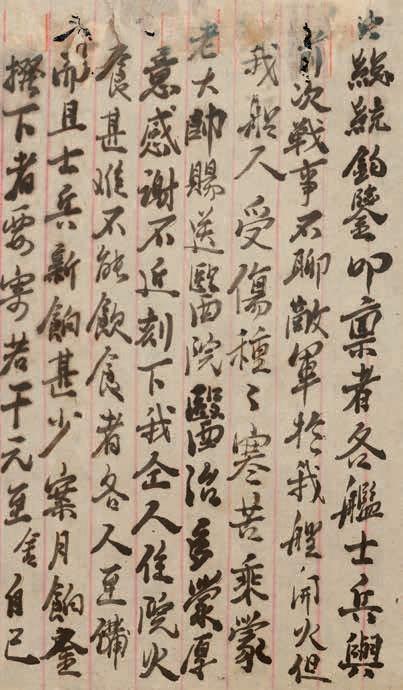 總統鈞鑒叩稟者各艦士兵與
次戰事不聊敵軍於我開火但
我船人受傷種〻寒苦乘蒙
老大帥賜送醫院醫治多蒙厚
意感謝不近刻下我仝人住院火
食甚难不能飲食者各人
而且士兵新餉甚少案月餉金
撥下者要寄若干元至舍自己